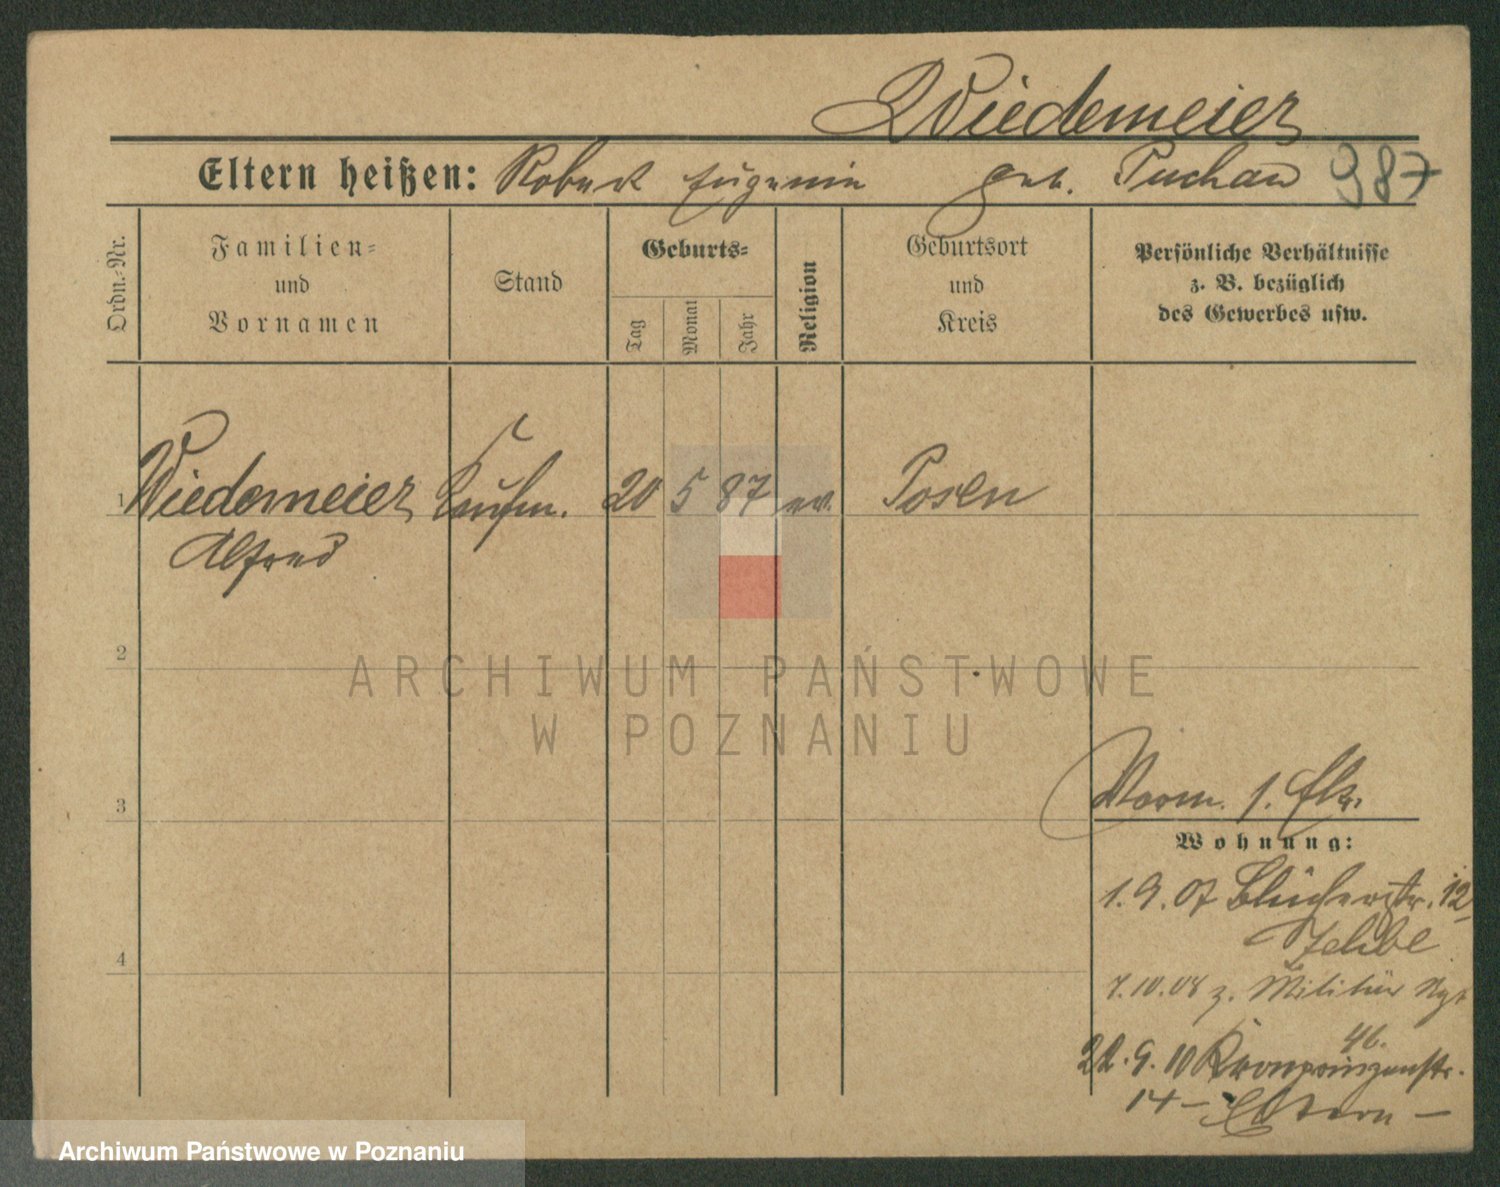 Wiedemeier
Eltern heißen: Robert Eugenie geb. Puchan 387
Ordn.-Nr.
Familien-
und
Vornamen
Stand
Geburts-
Tag
Monat
Jahr
Religion
Geburtsort
und
Kreis
Persönliche Verhältnisse
z. B. bezüglich
des Gewerbes usw.
1 Wiedemeier Kaufm. 20 5 87 ev. Posen
Alfred
2
ARCHIWUM PAŃSTWOWE
W POZNANIU
3
Wohnung:
1.9.07 Blücherstr. 12
4
7.10.08 z. Militär Rgt
46.
22.9.10 Kronprinzenstr.
14 – Eltern –
Archiwum Państwowe w Poznaniu